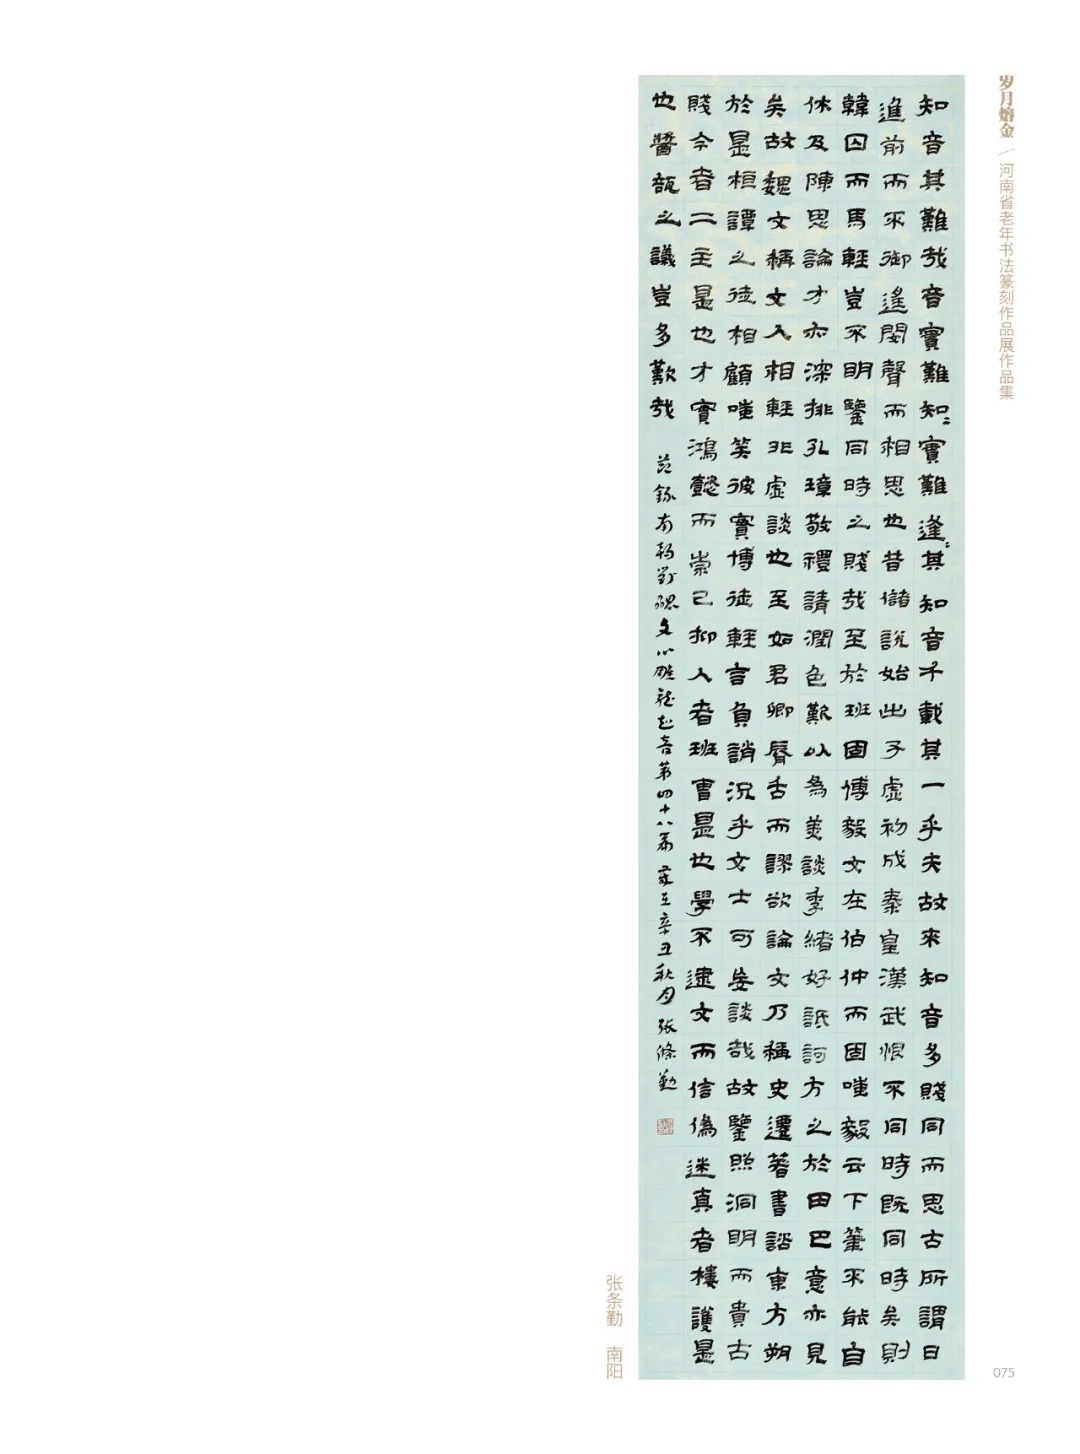 岁月熔金／河南省老年书法篆刻作品展作品集
知音其難哉音實難知〻實難逢〻其知音千載其一乎夫故來知音多賤同而思古所謂日
進前而不御遙聞聲而相思也昔儲說始出子虛初成秦皇漢武恨不同時既同時矣則
韓囚而馬輕豈不明鑒同時之賤哉至於班固傅毅文在伯仲而固嗤毅云下筆不能自
休及陳思論才亦深排孔璋敬禮請潤色歎以為美談季緒好詆訶方之於田巴意亦見
矣故魏文稱文人相輕非虛談也至如君卿脣舌而謬欲論文乃稱史遷著書諮東方朔
於是桓譚之徒相顧嗤笑彼實博徒輕言負誚況乎文士可妄談哉故鑒照洞明而貴古
賤今者二主是也才實鴻懿而崇己抑人者班曹是也學不逮文而信偽迷真者樓護是
也醬瓿之議豈多歎哉
節錄南朝劉勰文心雕龍知音第四十八篇 歲在辛丑秋月 張條勤
张条勤 南阳
075